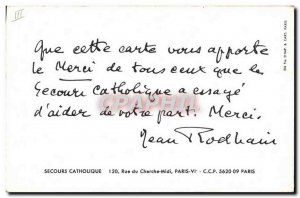 III
Que cette carte vous apporte
le Merci de tous ceux que le
Secours Catholique a essayé
d'aider de votre part. Merci.
Jean Rodhain
SECOURS CATHOLIQUE 120, Rue du Cherche-Midi, PARIS-VIᵉ - C.C.P. 5620-09 PARIS